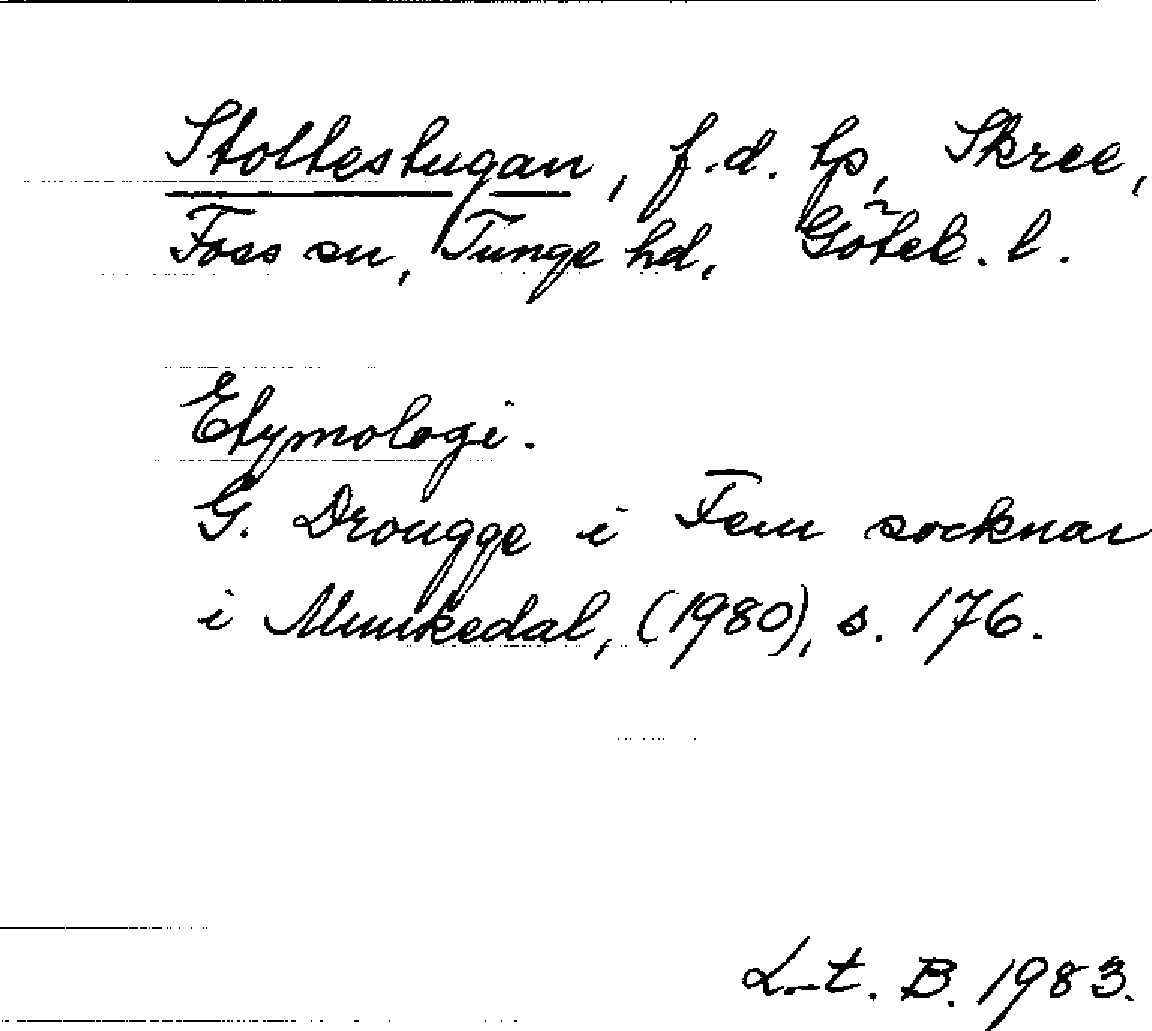 Stoltestugan, f.d. tp, Skree,
Foss sn, Tunge hd, Göteb. l.
Etymologi.
G. Drougge i Fem socknar
i Munkedal, (1980), s. 176.
L-t. B. 1983.